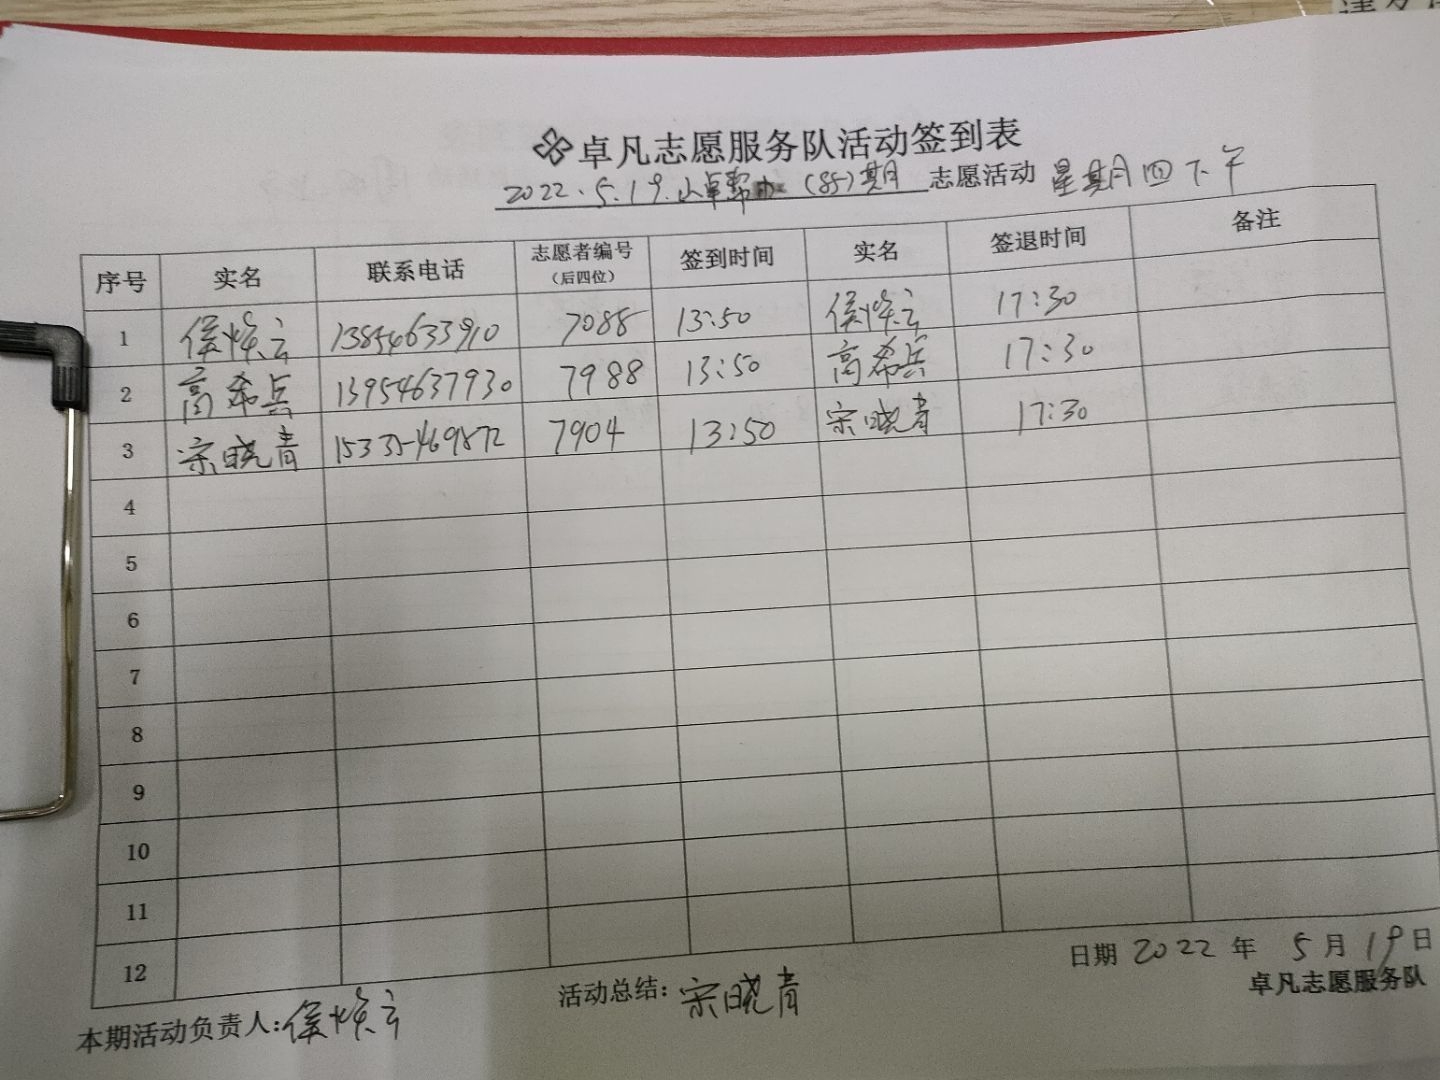 卓凡志愿服务队活动签到表
2022.5.19.小卓帮办(85)期 志愿活动 星期四下午
序号 实名 联系电话 志愿者编号(后四位) 签到时间 实名 签退时间 备注
1 侯焕云 13854633910 7088 13:50 侯焕云 17:30
2 高希兵 13954637930 7988 13:50 高希兵 17:30
3 宋晓青 15335469872 7904 13:50 宋晓青 17:30
4
5
6
7
8
9
10
11
12
日期 2022 年 5 月 19 日
卓凡志愿服务队
本期活动负责人:侯焕云 活动总结:宋晓青